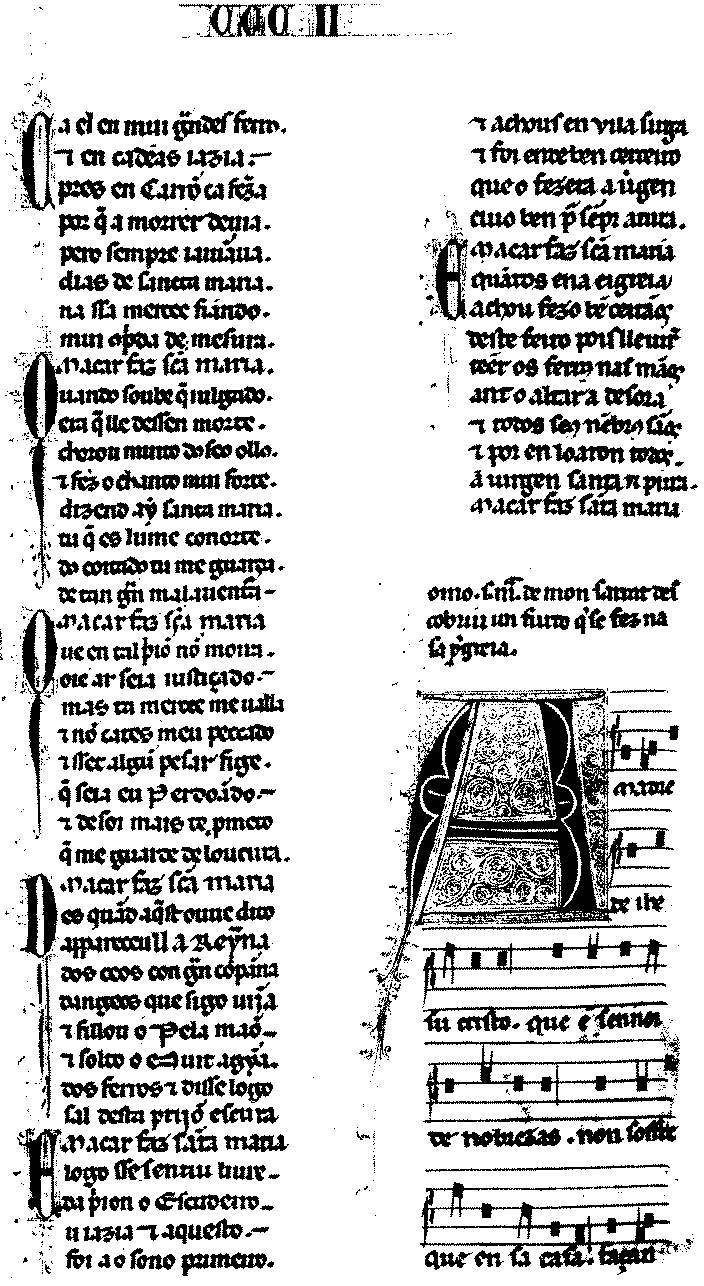 CCC II
Ca el en mui g̃ndes ferros.
⁊ en cadẽas iazia.
pres en Carrõ ca fez̃a
por q̃ a morrer deuia.
pero sempre iaiũaua.
dias de sancta maria.
na ssa mercee fiando.
mui
Macar faz sc̃a maria.
Quando soube q̃ iulgado.
era q̃ lle dessen morte.
chorou muito do seo ollo.
⁊ fez o chanto mui forte.
dizend ay santa maria.
tu q̃ es lume conorte.
do contado tu me guarda.
de tan g̃n malauentũ-
Macar faz sc̃a maria
Que en tal p̃iõ nõ moira.
oie ar seia iustiçado.
mas ta mercee me ualla
⁊ nõ cates meu peccado
⁊ sse algũ pesar fige.
q̃ seia eu perdõado.
⁊ desoi mais te pmeto
q̃ me guarde de loucura.
Macar faz sc̃a maria
Des quãd aq̃st ouue dito
appareceull a Reỹna
dos ceos con g̃n cõpãna
dangeos que sigo uĩja
⁊ fillou o pela mão
⁊ solto o
dos ferros ⁊ disse logo
sal desta prijõ escura
Macar faz sãta maria
E logo sse sentiu liure
da p̃ion o Escudeiro
u iazia ⁊ aquesto.
foi a o sono primeiro.
⁊ achous en vila sirga
⁊ foi ende ben certeiro
que o fezera a uĩgen
cuio ben p̃ sẽpr atura.
Macar faz sc̃a maria
E quãtos ena eigreia
achou fezo bẽ certãos
deste feito
teer os ferros nas mãos
ant o altar a desora
⁊ todos
⁊ por en loaron todos.
a uirgen santa ⁊ pura.
Macar faz sãta maria
Como. s. m̃. de mon sarrat des
cobriu un furto q̃ se fez na
sa ygreia.
A madre
de ihe
su cristo. que é sennor
de nobrezas. non soffre
que en sa casa. façan